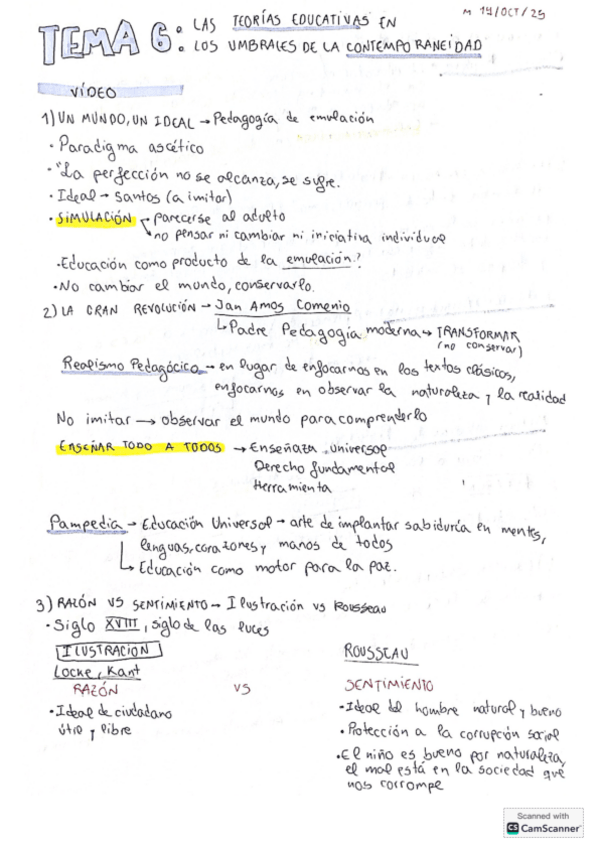 M 14/OCT/25
TEMA 6: LAS TEORÍAS EDUCATIVAS EN
LOS UMBRALES DE LA CONTEMPORANEIDAD
VÍDEO
1) UN MUNDO, UN IDEAL → Pedagogía de emulación
· Paradigma ascético
· "La perfección no se alcanza, se sufre.
· Ideal → Santos (a imitar)
· SIMULACIÓN → parecerse al adulto
→ no pensar ni cambiar ni iniciativa individual
· Educación como producto de la emulación?
· No cambiar el mundo, conservarlo.
2) LA GRAN REVOLUCIÓN → Jan Amos Comenio
↳ Padre Pedagogía moderna → TRANSFORMAR
(no conservar)
Realismo Pedagógico → en lugar de enfocarnos en los textos clásicos,
enfocarnos en observar la naturaleza y la realidad
No imitar → observar el mundo para comprenderlo
ENSEÑAR TODO A TODOS → Enseñaza universal
Derecho fundamental
Herramienta
Pampedia → Educación Universal → arte de implantar sabiduría en mentes,
lenguas, corazones y manos de todos
↳ Educación como motor para la paz.
3) RAZÓN VS SENTIMIENTO → Ilustración vs Rousseau
· Siglo XVIII, siglo de las luces
ILUSTRACION
Locke, Kant
RAZÓN
· Ideal de ciudadano
útil y libre
VS
ROUSSEAU
SENTIMIENTO
· Ideal del hombre natural y bueno
· Protección a la corrupción social
· El niño es bueno por naturaleza,
el mal está en la sociedad que
nos corrompe
Scanned with
CS CamScanner